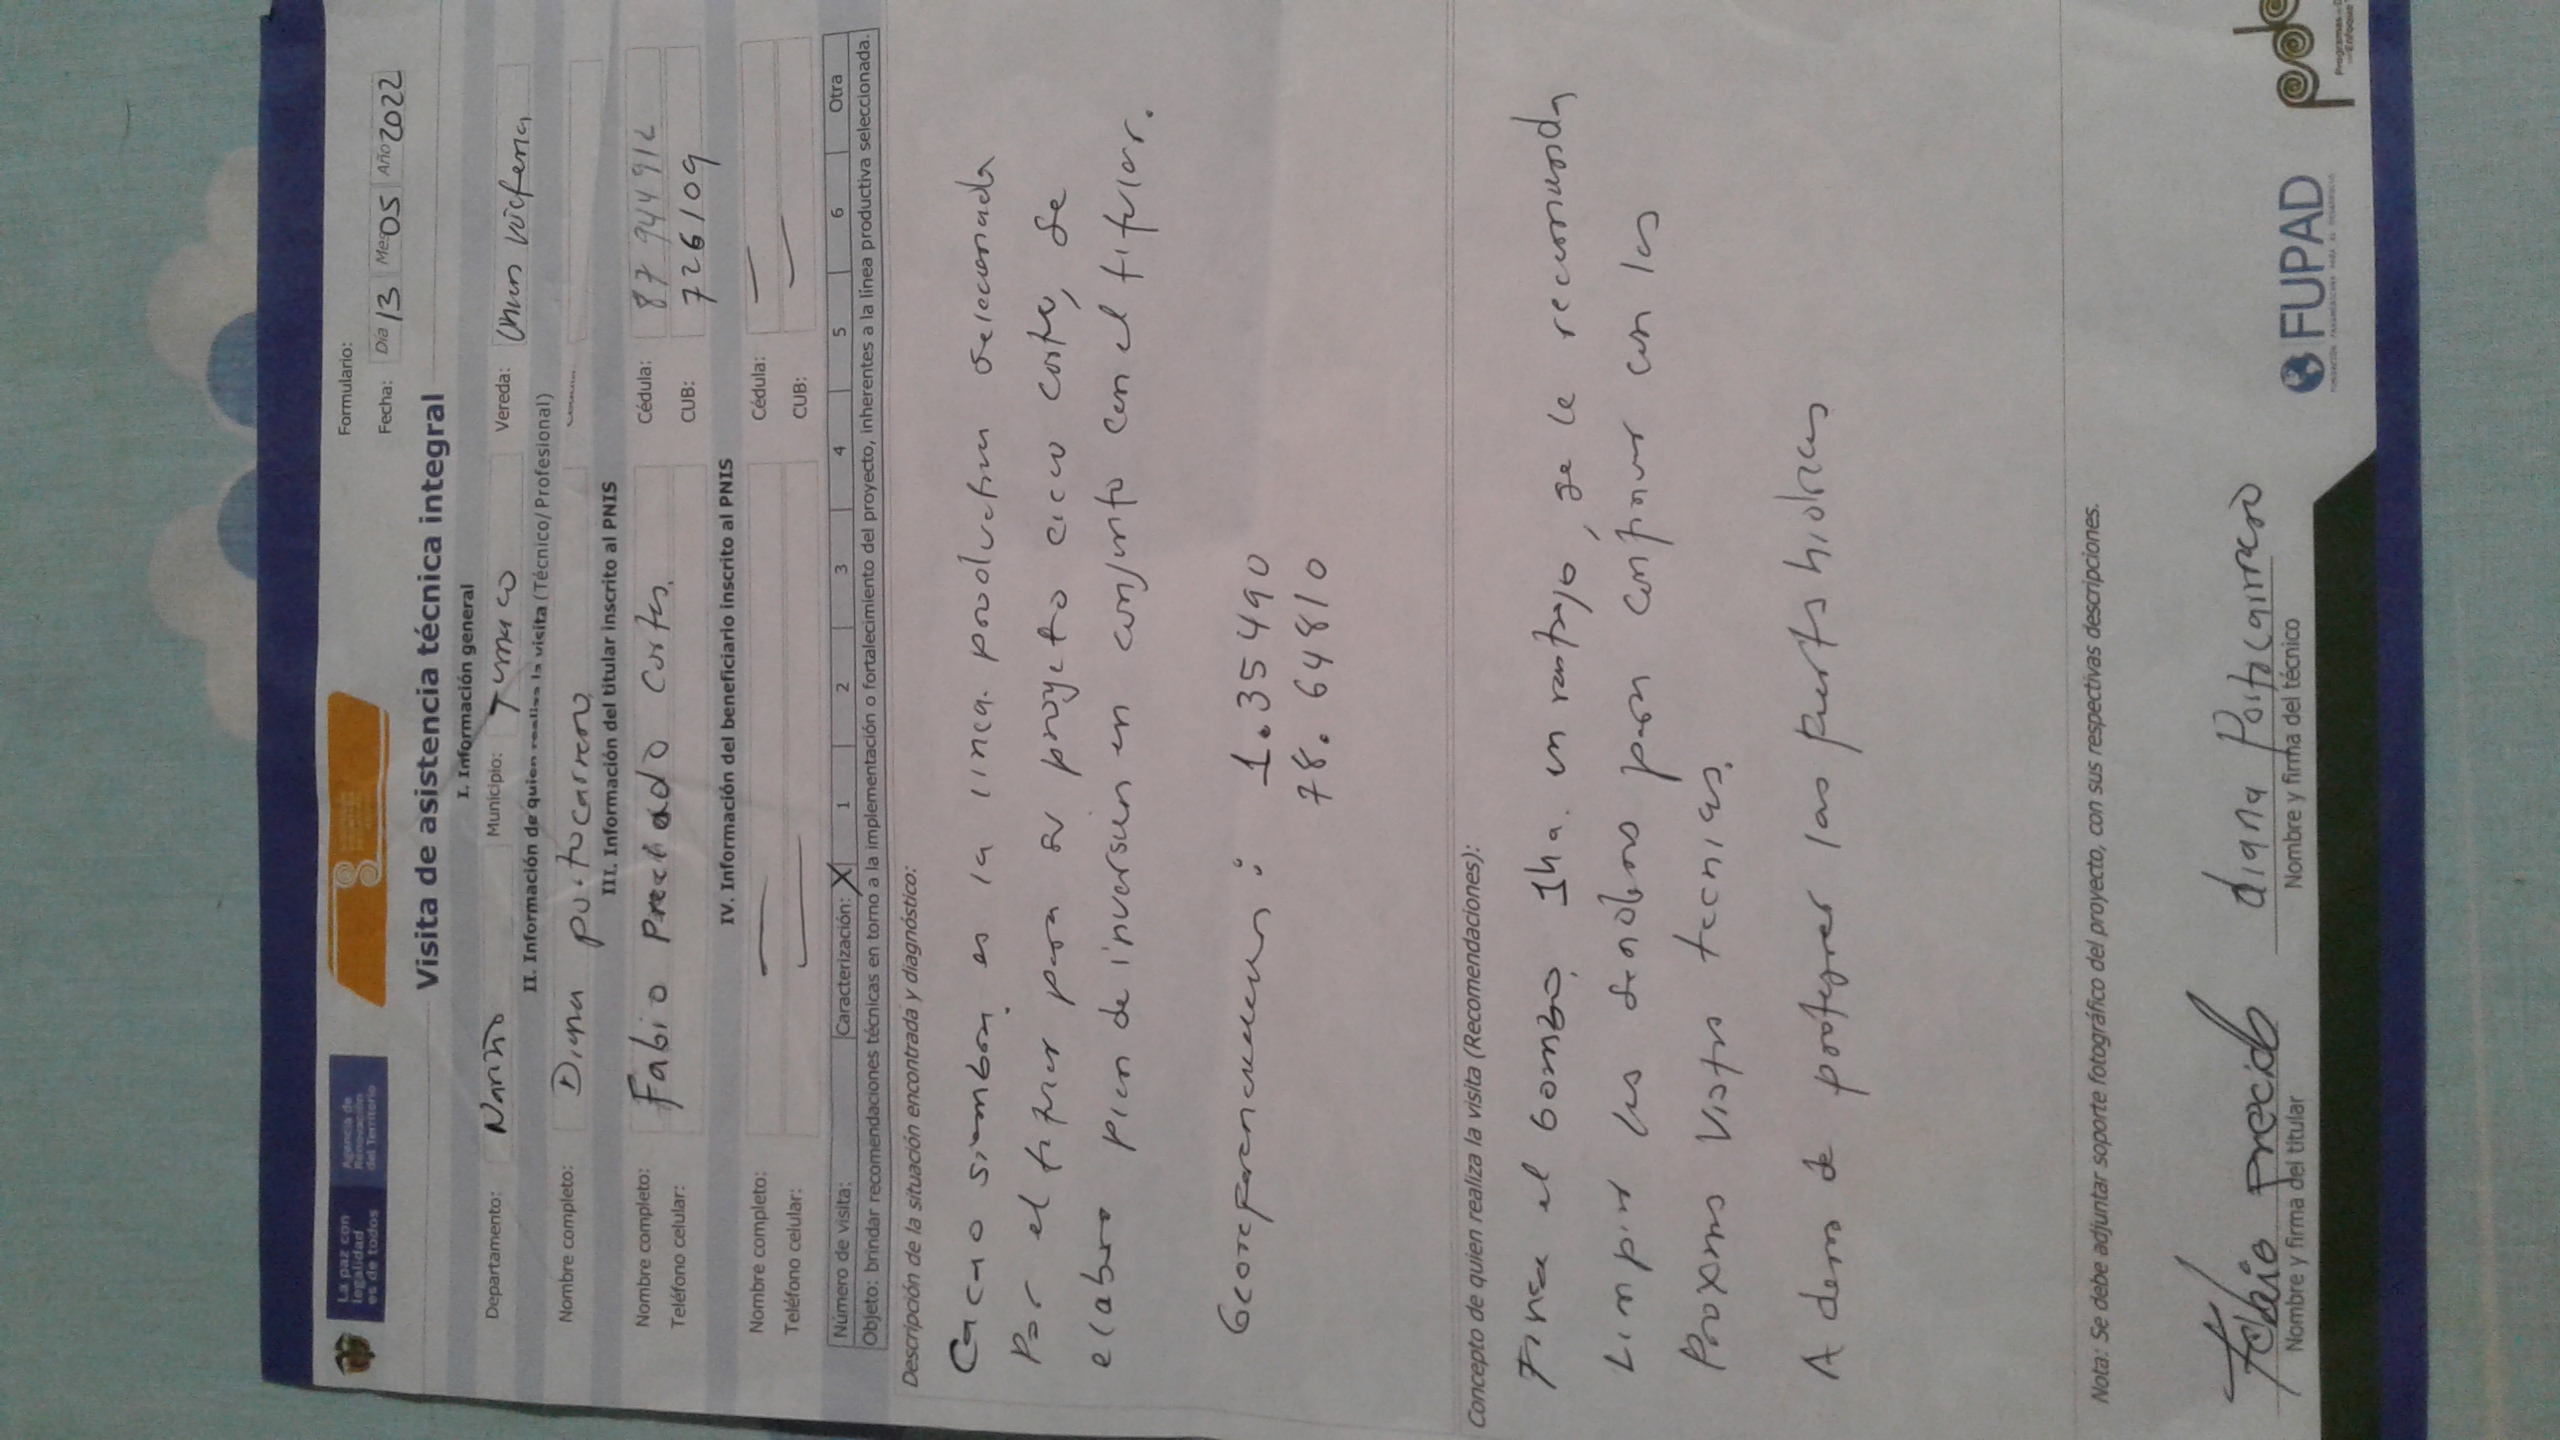 La paz con
legalidad
es de todos
Agencia de
Renovación
del Territorio
Formulario:
Fecha: Día 13 Mes 05 Año 2022
Visita de asistencia técnica integral
I. Información general
Departamento: Nariño Municipio: Tumaco Vereda:
II. Información de quien realiza la visita (Técnico/Profesional)
Nombre completo: Diana portocarrero
III. Información del titular inscrito al PNIS
Nombre completo: Fabio Preciado Cortes Cédula: 87944912
Teléfono celular: CUB: 726109
IV. Información del beneficiario inscrito al PNIS
Nombre completo: Cédula:
Teléfono celular: CUB:
Número de visita: Caracterización: X 1 2 3 4 5 6 Otra
Objeto: brindar recomendaciones técnicas en torno a la implementación o fortalecimiento del proyecto, inherentes a la línea productiva seleccionada.
Descripción de la situación encontrada y diagnóstico:
Cacao siembra es la linea productiva seleccionada
Por el titular para su proyecto ciclo corto, se
elaboro plan de inversion en conjunto con el titular.
Georeferenciacion: 1.35490
78.64810
Concepto de quien realiza la visita (Recomendaciones):
Finca el 1ha. en rastrojo, se le recomienda
Limpiar los para con las
Proximas visitas tecnicas.
Ademas de proteger las fuentes hidricas
Nota: Se debe adjuntar soporte fotográfico del proyecto, con sus respectivas descripciones.
Fabio Preciado diana Portocarrero
Nombre y firma del titular Nombre y firma del técnico
FUPAD